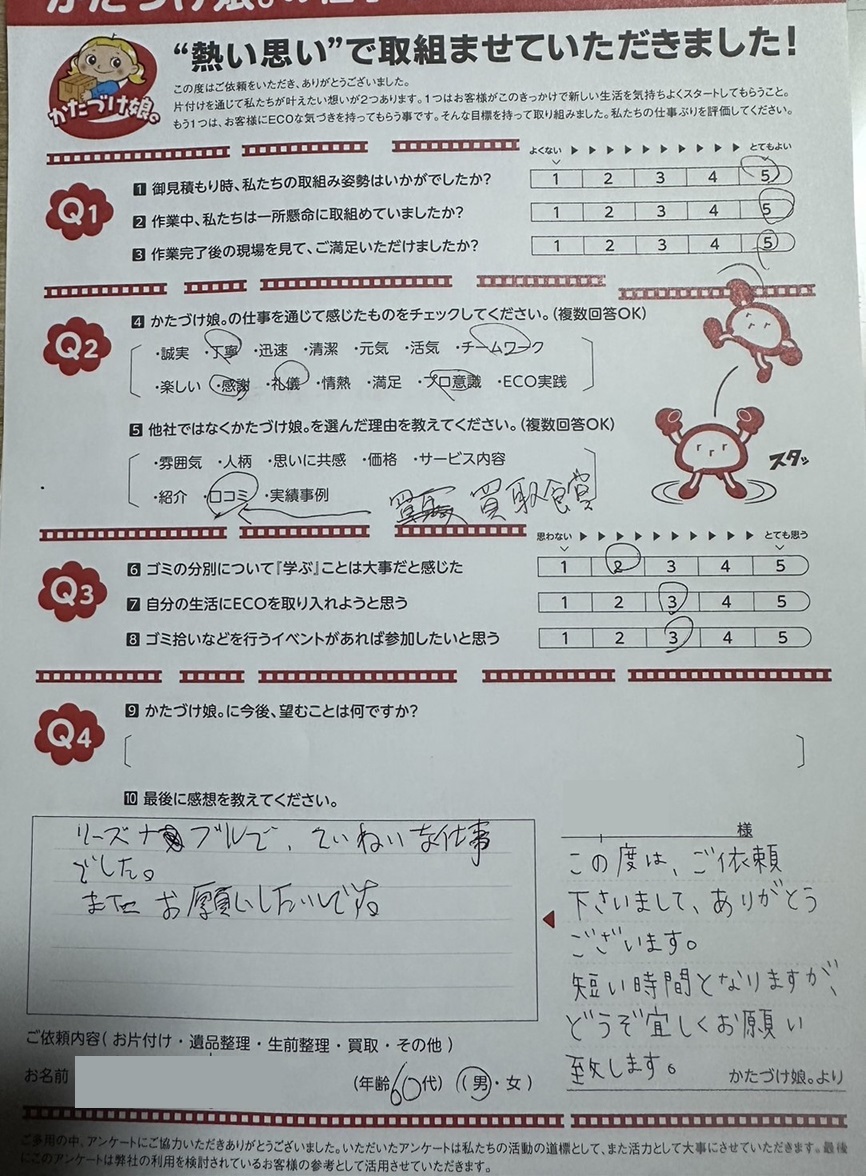 かたづけ娘。の仕
かたづけ娘。
“熱い思い”で取組ませていただきました！
この度はご依頼をいただき、ありがとうございました。
片付けを通じて私たちが叶えたい想いが2つあります。1つはお客様がこのきっかけで新しい生活を気持ちよくスタートしてもらうこと。
もう1つは、お客様にECOな気づきを持ってもらう事です。そんな目標を持って取り組みました。私たちの仕事ぶりを評価してください。
よくない ▶ ▶ ▶ ▶ ▶ ▶ ▶ ▶ ▶ ▶ とてもよい
Q1
1 御見積もり時、私たちの取組み姿勢はいかがでしたか? 1 2 3 4 5
2 作業中、私たちは一所懸命に取組めていましたか? 1 2 3 4 5
3 作業完了後の現場を見て、ご満足いただけましたか? 1 2 3 4 5
Q2
4 かたづけ娘。の仕事を通じて感じたものをチェックしてください。(複数回答OK)
・誠実 ・丁寧 ・迅速 ・清潔 ・元気 ・活気 ・チームワーク
・楽しい ・感謝 ・礼儀 ・情熱 ・満足 ・プロ意識 ・ECO実践
5 他社ではなくかたづけ娘。を選んだ理由を教えてください。(複数回答OK)
・雰囲気 ・人柄 ・思いに共感 ・価格 ・サービス内容
・紹介 ・口コミ ・実績事例 買取
スタッ
思わない ▶ ▶ ▶ ▶ ▶ ▶ ▶ ▶ ▶ ▶ とても思う
Q3
6 ゴミの分別について『学ぶ』ことは大事だと感じた 1 2 3 4 5
7 自分の生活にECOを取り入れようと思う 1 2 3 4 5
8 ゴミ拾いなどを行うイベントがあれば参加したいと思う 1 2 3 4 5
Q4
9 かたづけ娘。に今後、望むことは何ですか?
10 最後に感想を教えてください。
リーズナブルで、ていねいな仕事
でした。
またお願いしたいです。
様
この度は、ご依頼
下さいまして、ありがとう
ございます。
短い時間となりますが、
どうぞ宜しくお願い
致します。
かたづけ娘。より
ご依頼内容(お片付け・遺品整理・生前整理・買取・その他)
お名前 (年齢60代) (男・女)
ご多用の中、アンケートにご協力いただきありがとうございました。いただいたアンケートは私たちの活動の道標として、また活力として大事にさせていただきます。最後
にこのアンケートは弊社の利用を検討されているお客様の参考として活用させていただきます。